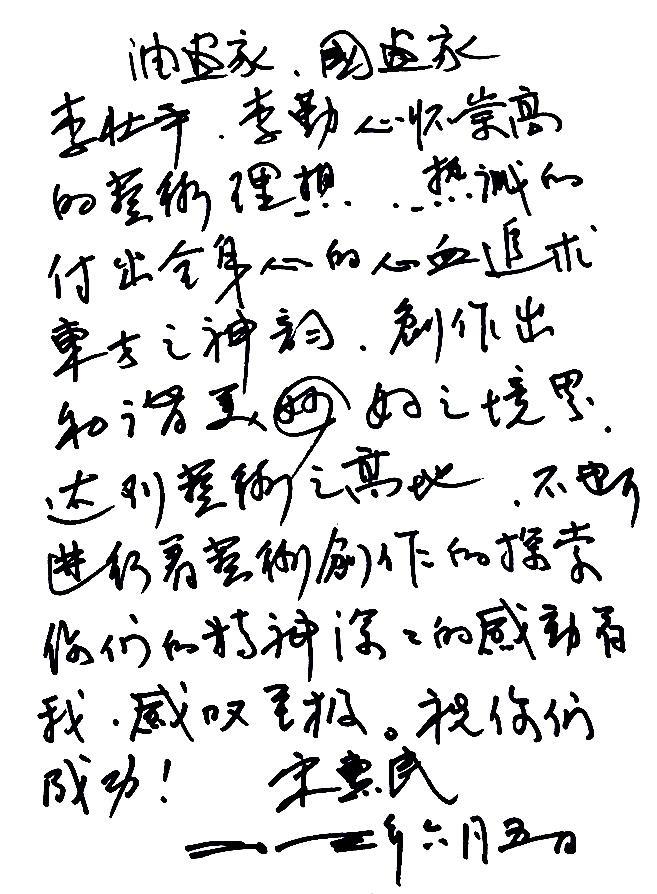 油画家、國画家
李壮平、李勤心怀崇高
的藝術理想、热诚的
付出全身心的心血追求
東方之神韵、創作出
和谐美妙好之境界、
达到藝術之高地、不断
进行着藝術創作的探索
你们的精神深之的感動着
我、感叹至极。祝你们
成功！ 宋惠民
年六月五日